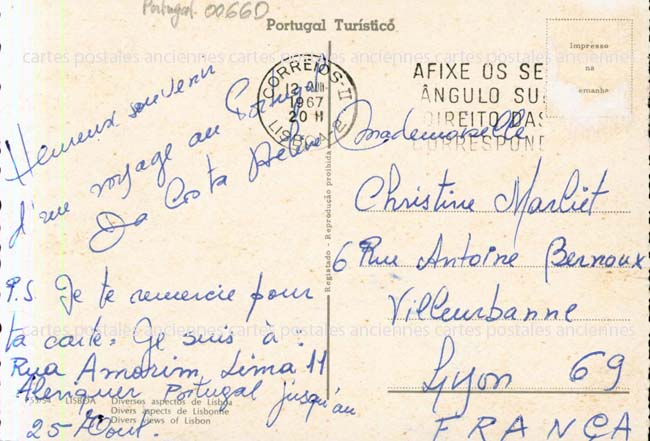 Portugal 0066D
Portugal Turístico
Impresso
na
CORREIOS-II
12
1967
20 H
LISBOA
AFIXE OS SE
ÂNGULO SU
DIREITO DAS
CORRESPON
cartes postales anciennes cartes postales anciennes cartes postales anciennes
Heureux souvenir
d'un voyage au Portugal
Da Costa
P.S. Je te remercie pour
ta carte. Je suis à :
Rua Amorim Lima 11
Alenquer Portugal jusqu'au
25 Aout.
Mademoiselle
Christine Marliet
6 Rue Antoine Bernoux
Villeurbanne
Lyon 69
FRANCA
Registado - Reprodução proibida
LISBOA Diversos aspectos de Lisboa
Divers aspects de Lisbonne
Divers views of Lisbon
cartes postales anciennes cartes postales anciennes cartes postales anciennes